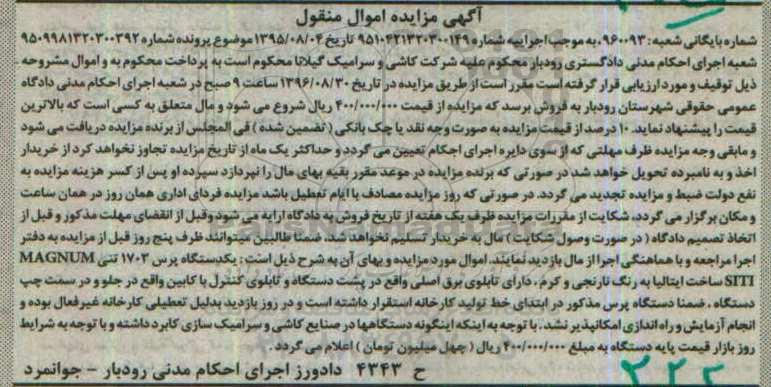 آگهی مزایده اموال منقول
شماره بایگانی شعبه: ۰۹۶۰۰۹۳، به موجب اجراییه شماره ۹۵۱۰۴۲۱۳۲۰۳۰۰۱۴۹ تاریخ ۱۳۹۵/۰۸/۰۴ موضوع پرونده شماره ۹۵۰۹۹۸۱۳۲۰۳۰۰۳۹۲
شعبه اجرای احکام مدنی دادگستری رودبار محکوم علیه شرکت کاشی و سرامیک گیلانا محکوم است به پرداخت محکوم به و اموال مشروحه
ذیل توقیف و مورد ارزیابی قرار گرفته است مقرر است از طریق مزایده در تاریخ ۱۳۹۶/۰۸/۳۰ ساعت ۹ صبح در شعبه اجرای احکام مدنی دادگاه
عمومی حقوقی شهرستان رودبار به فروش برسد که مزایده از قیمت ۴۰۰/۰۰۰/۰۰۰ ریال شروع می شود و مال متعلق به کسی است که بالاترین
قیمت را پیشنهاد نماید. ۱۰ درصد از قیمت مزایده به صورت وجه نقد یا چک بانکی ( تضمین شده ) فی المجلس از برنده مزایده دریافت می شود
و مابقی وجه مزایده ظرف مهلتی که از سوی دایره اجرای احکام تعیین می گردد و حداکثر یک ماه از تاریخ مزایده تجاوز نخواهد کرد از خریدار
اخذ و به نامبرده تحویل خواهد شد، در صورتی که برنده مزایده در موعد مقرر بقیه بهای مال را نپردازد سپرده او پس از کسر هزینه مزایده به
نفع دولت ضبط و مزایده تجدید می گردد. در صورتی که روز مزایده مصادف با ایام تعطیل باشد مزایده فردای اداری همان روز در همان ساعت
و مکان برگزار می گردد، شکایت از مقررات مزایده ظرف یک هفته از تاریخ فروش به دادگاه ارایه می شود وقبل از انقضای مهلت مذکور و قبل از
اتخاذ تصمیم دادگاه ( در صورت وصول شکایت ) مال به خریدار تسلیم نخواهد شد، ضمنا طالبین میتوانند ظرف پنج روز قبل از مزایده به دفتر
اجرا مراجعه و با هماهنگی اجرا از مال بازدید نمایند. اموال مورد مزایده و بهای آن به شرح ذیل است: یکدستگاه پرس ۱۷۰۳ تنی MAGNUM
SITI ساخت ایتالیا به رنگ نارنجی و کرم ، دارای تابلوی برق اصلی واقع در پشت دستگاه و تابلوی کنترل با کابین واقع در جلو و در سمت چپ
دستگاه ، ضمنا دستگاه پرس مذکور در ابتدای خط تولید کارخانه استقرار داشته است و در روز بازدید بدلیل تعطیلی کارخانه غیرفعال بوده و
انجام آزمایش و راه اندازی امکانپذیر نشد. با توجه به اینکه اینگونه دستگاهها در صنایع کاشی و سرامیک سازی کابرد داشته و با توجه به شرایط
روز بازار قیمت پایه دستگاه به مبلغ ۴۰۰/۰۰۰/۰۰۰ ریال ( چهل میلیون تومان ) اعلام می گردد .
ح ۴۳۴۳ دادورز اجرای احکام مدنی رودبار - جوانمرد